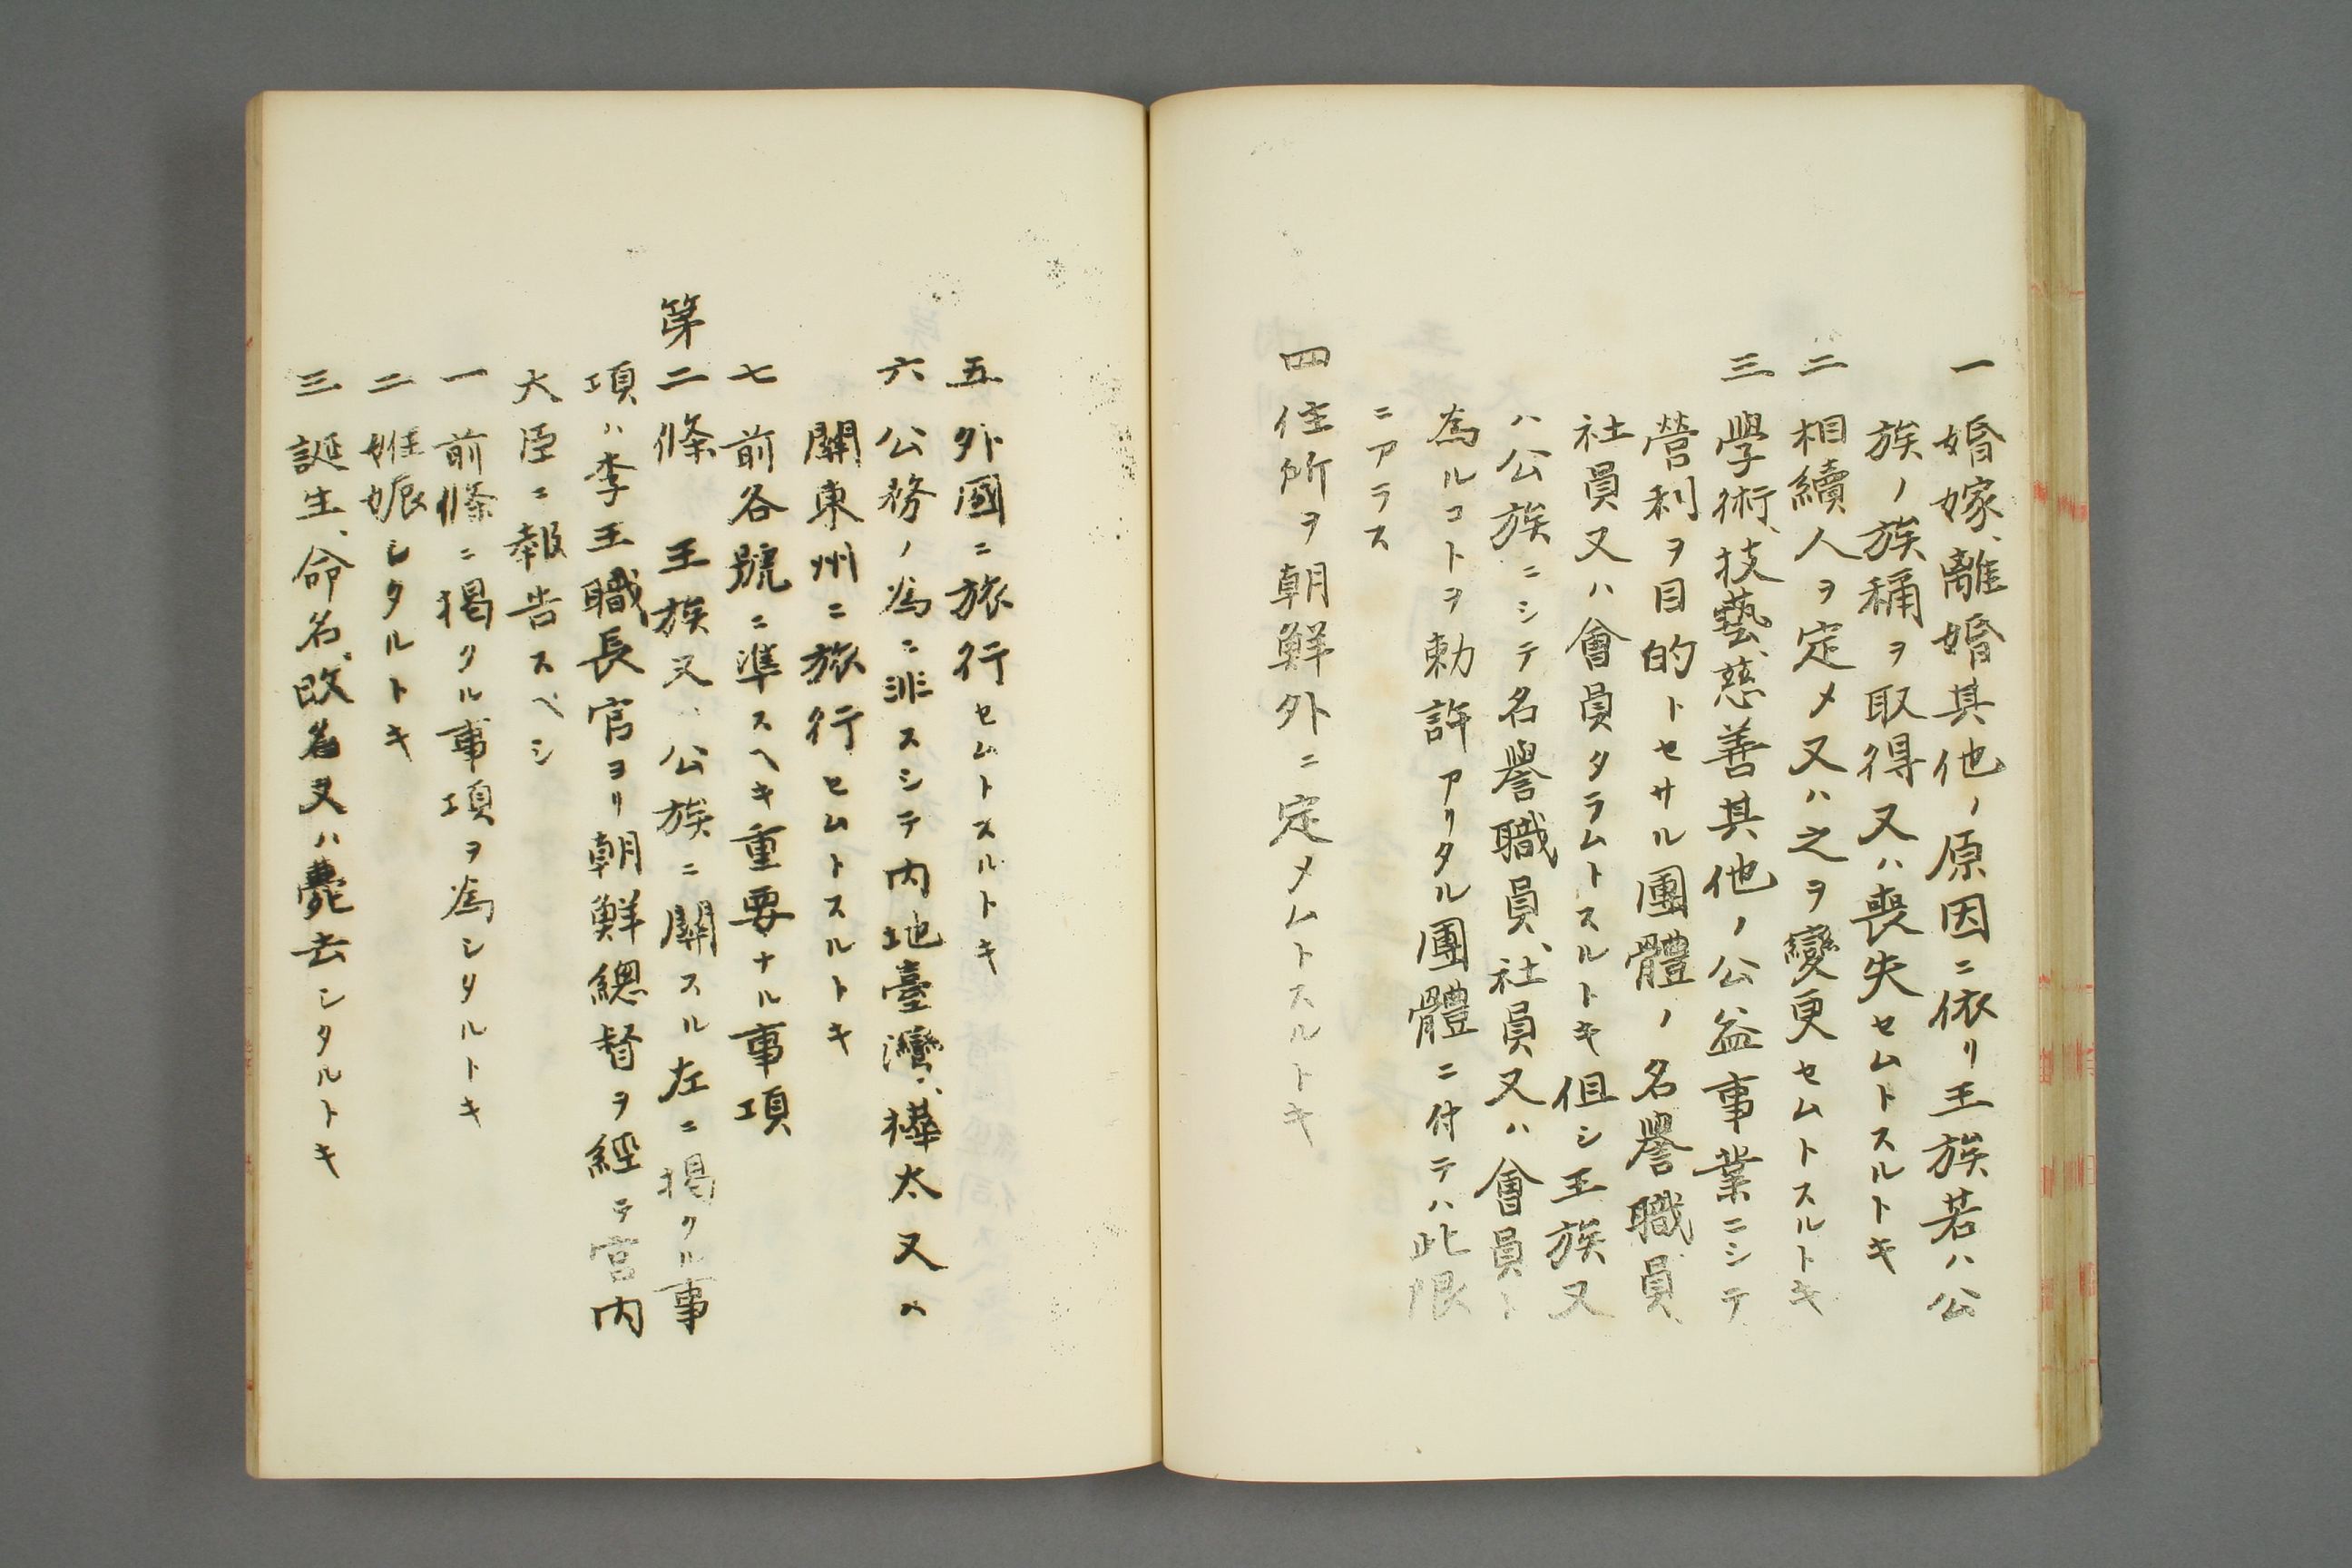 一 婚嫁、離婚其他ノ原因ニ依リ王族若ハ公
族ノ族稱ヲ取得又ハ喪失セムトスルトキ
二 相續人ヲ定メ又ハ之ヲ變更セムトスルトキ
三 學術、技藝、慈善其他ノ公益事業ニシテ
營利ヲ目的トセサル團體ノ名譽職員、
社員又ハ會員タラムトスルトキ但シ王族又
ハ公族ニシテ名譽職員、社員又ハ會員
為ルコトヲ勅許アリタル團體ニ付テハ此限
ニアラス
四 住所ヲ朝鮮外ニ定メムトスルトキ
五 外國ニ旅行セムトスルトキ
六 公務ノ為ニ非スシテ内地臺灣、樺太又ハ
關東州ニ旅行セムトスルトキ
七 前各號ニ準スヘキ重要ナル事項
第二條 王族又ハ公族ニ關スル左ニ掲クル事
項ハ李王職長官ヨリ朝鮮總督ヲ經テ宮内
大臣ニ報告スベシ
一 前條ニ掲クル事項ヲ為シタルトキ
二 妊娠シタルトキ
三 誕生、命名、改名又ハ薨去シタルトキ